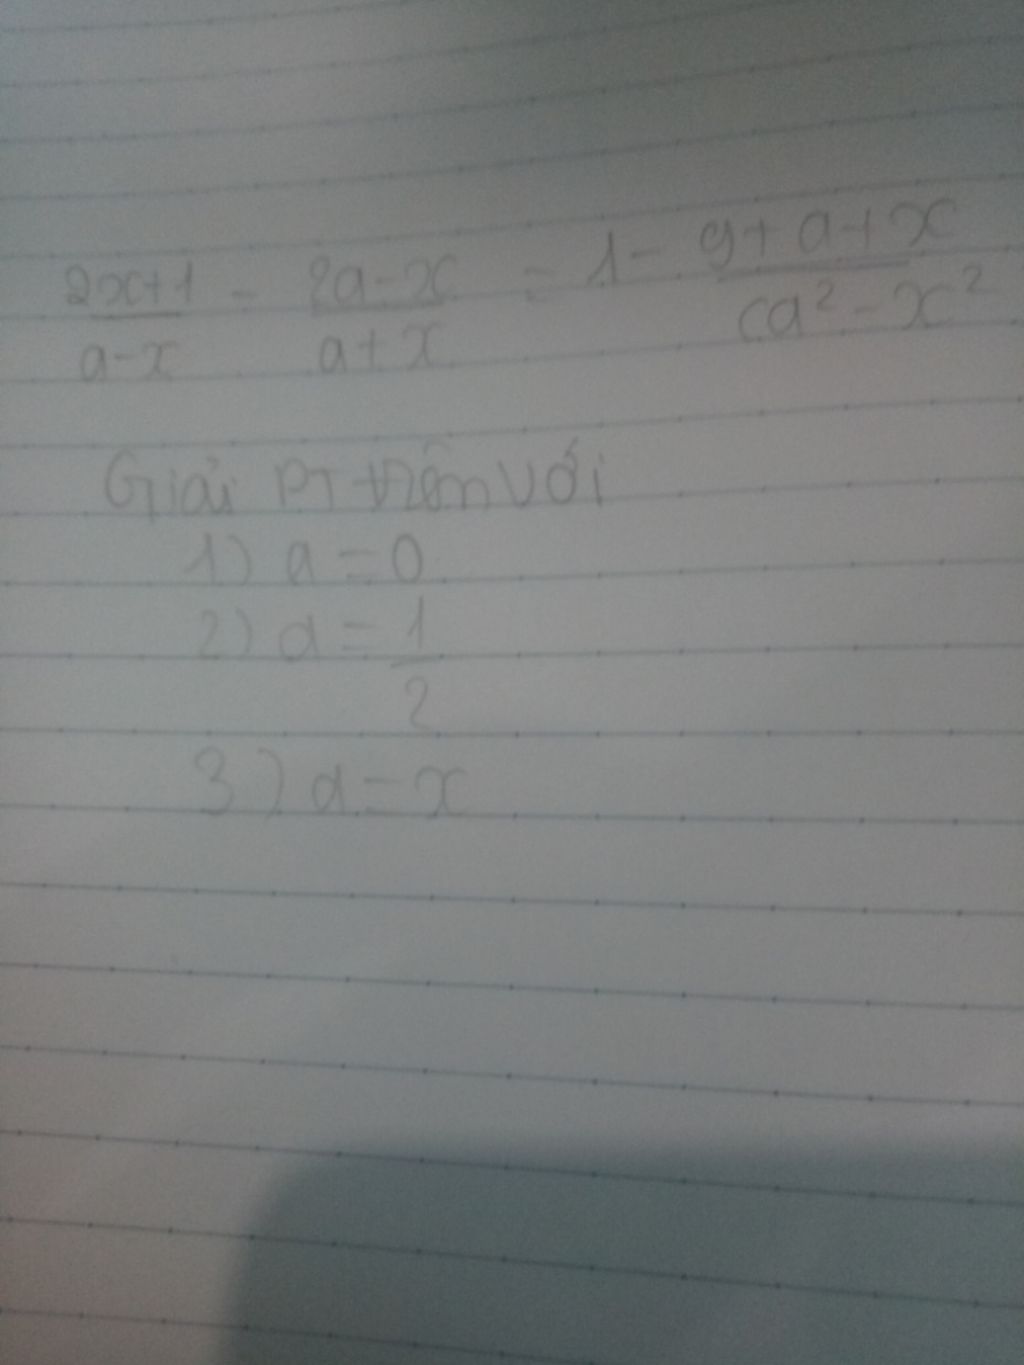 2x+1/a-x - 2a-x/a+x = 1 - 9+a+x/ca²-x²
Giải PT trên với
1) a = 0
2) a = 1/2
3) a = x